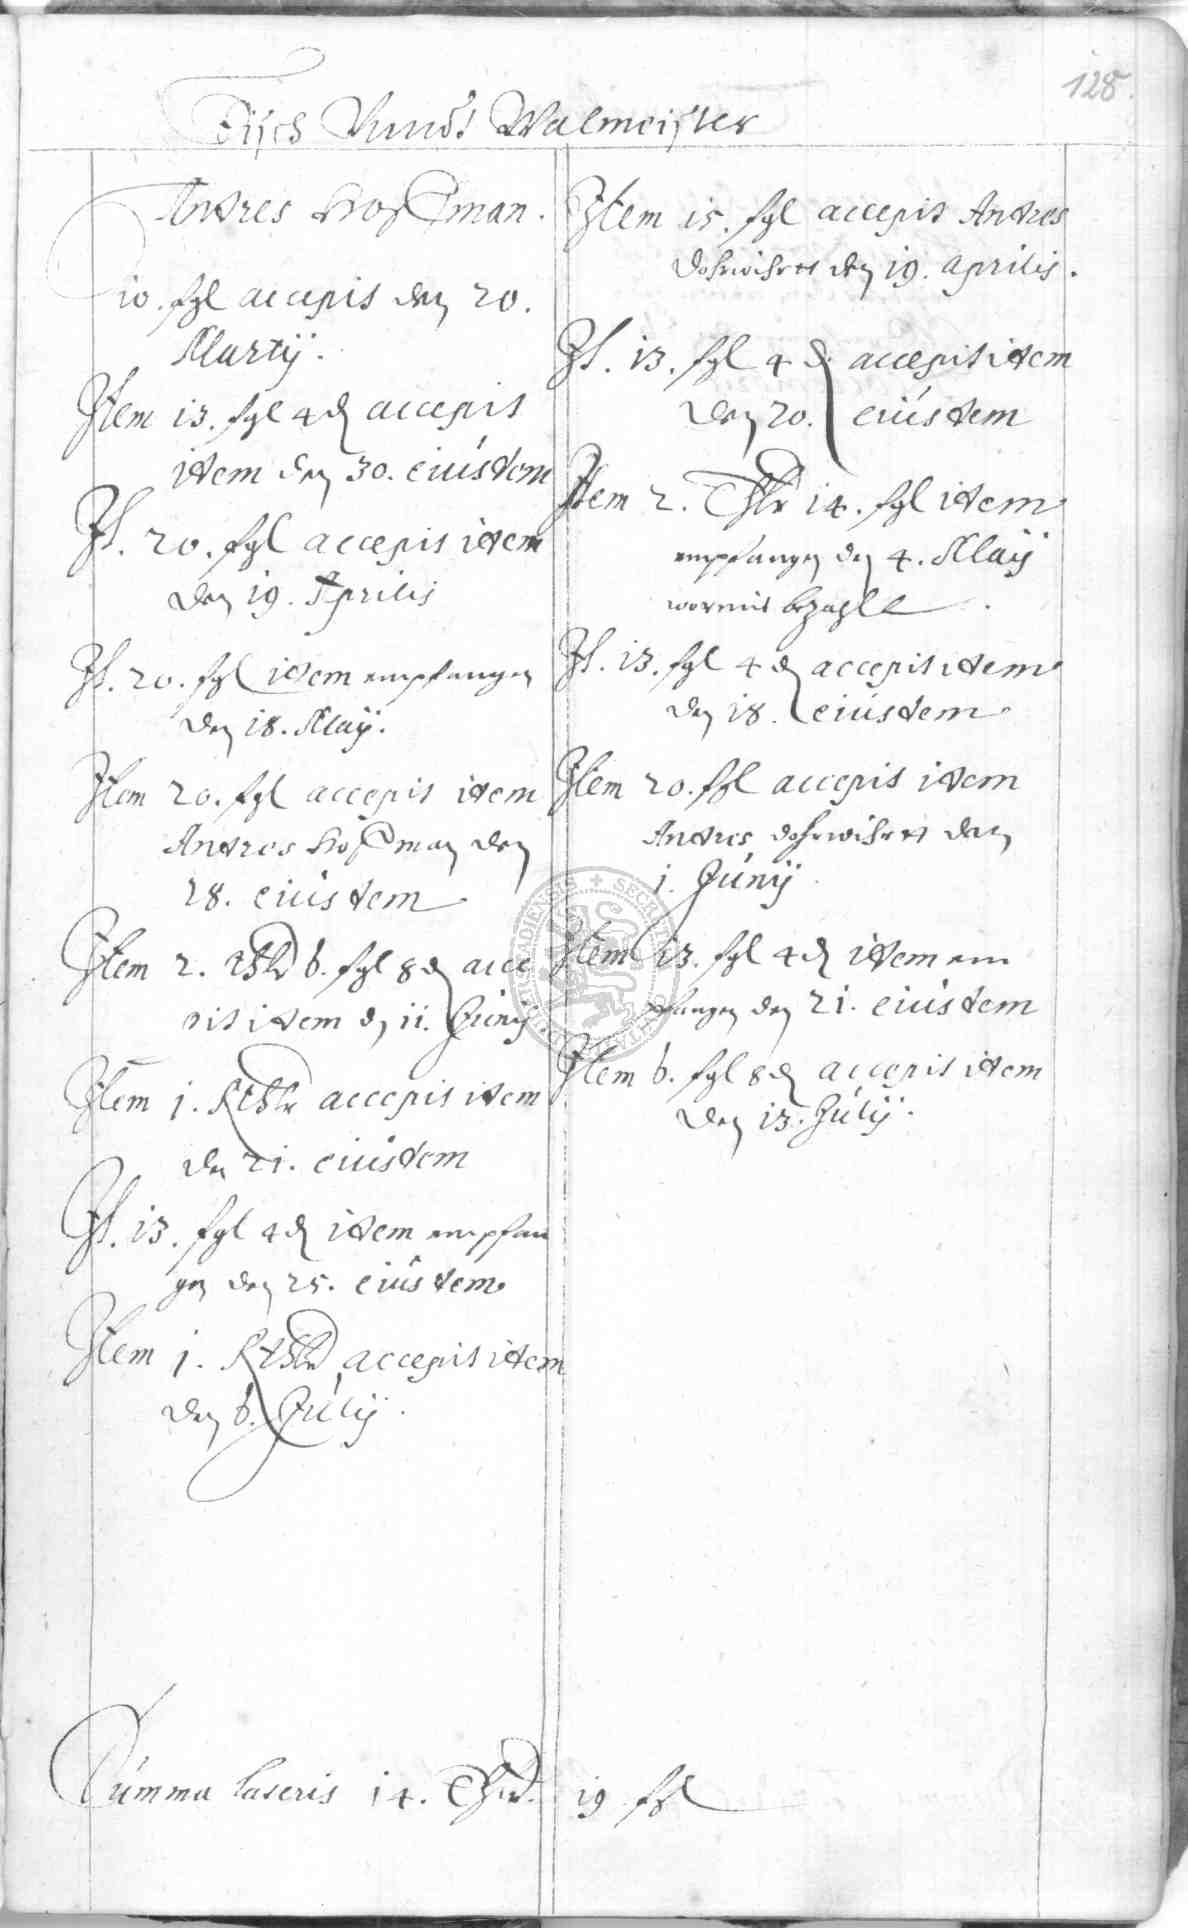 128.
Fisch Vnndt Walmeister
Andres Hoffman.
10. ßgl accepit den 20.
Martij.
Item 13. ßgl 4 ₰ accepit
idem den 30. eiusdem
It. 20. ßgl accepit idem
den 19. Aprilis
It. 20. ßgl idem empfangen
den 18. Maij.
Item 20. ßgl accepit idem
Andres Hoffman den
28. eiusdem
Item 2. Rthlr 6. ßgl 8 ₰ acce
pit idem den 11. Junij
Item 1. Rthlr accepit idem
den 21. eiusdem
It. 13. ßgl 4 ₰ idem empfan
gen den 25. eiusdem
Item 1. Rthlr accepit idem
den 6. Julij.
Item 15. ßgl accepit Andres
den 19. Aprilis.
It. 13. ßgl 4 ₰ accepit idem
den 20. eiusdem
Item 2. Thlr 14. ßgl idem
empfangen den 4. Maij
wormit bezahlt
It. 13. ßgl 4 ₰ accepit idem
den 18. eiusdem
Item 20. ßgl accepit idem
Andres den
1. Junij
Item 13. ßgl 4 ₰ idem em
pfangen den 21. eiusdem
Item 6. ßgl 8 ₰ accepit idem
den 13. Julij.
Summa lateris 14. Thlr. 19 ßgl